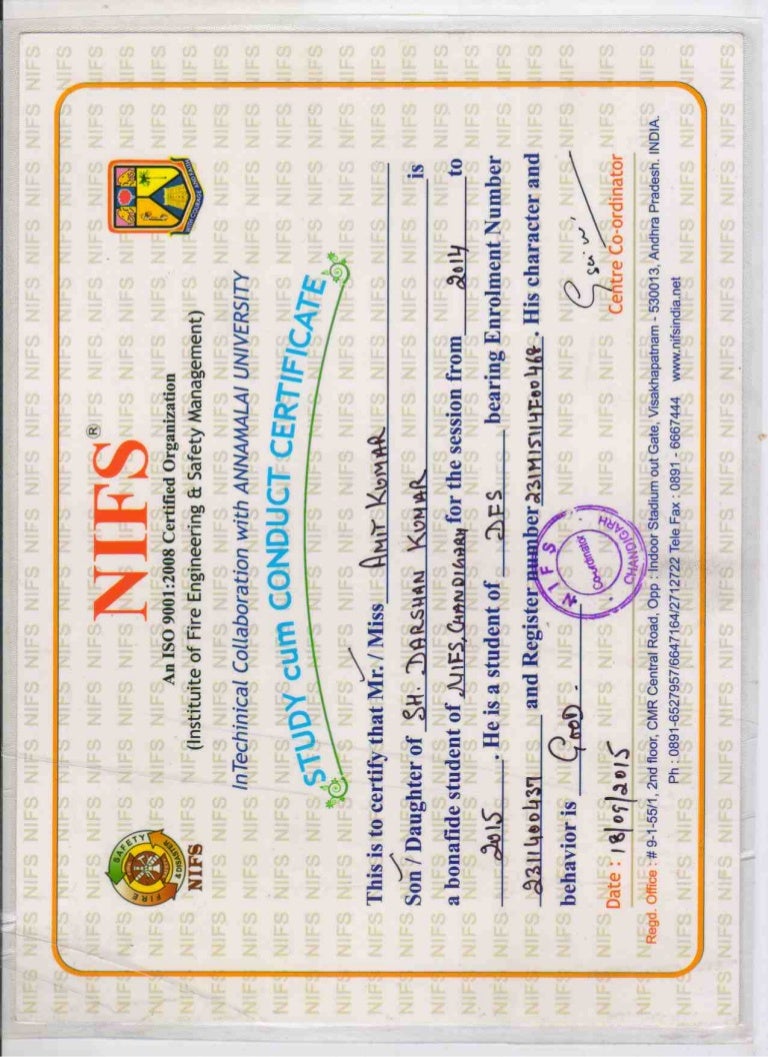 NIFS®
An ISO 9001:2008 Certified Organization
(Instituite of Fire Engineering & Safety Management)
InTechinical Collaboration with ANNAMALAI UNIVERSITY
STUDY cum CONDUCT CERTIFICATE
SAFETY
FIRE
& DISASTER
NIFS
This is to certify that Mr. / Miss AMIT KUMAR
Son / Daughter of SH. DARSHAN KUMAR is
a bonafide student of NIFS, CHANDIGARH for the session from 2014 to
2015 . He is a student of DFS bearing Enrolment Number
2311400437 and Register number . His character and
behavior is GOOD.
NIFS
Co-ordinator
CHANDIGARH
Date : 18/09/2015
Centre Co-ordinator
Regd. Office : # 9-1-55/1, 2nd floor, CMR Central Road, Opp : Indoor Stadium out Gate, Visakhapatnam - 530013, Andhra Pradesh. INDIA.
Ph : 0891-6527957/6647164/2712722 Tele Fax : 0891 - 6667444 www.nifsindia.net